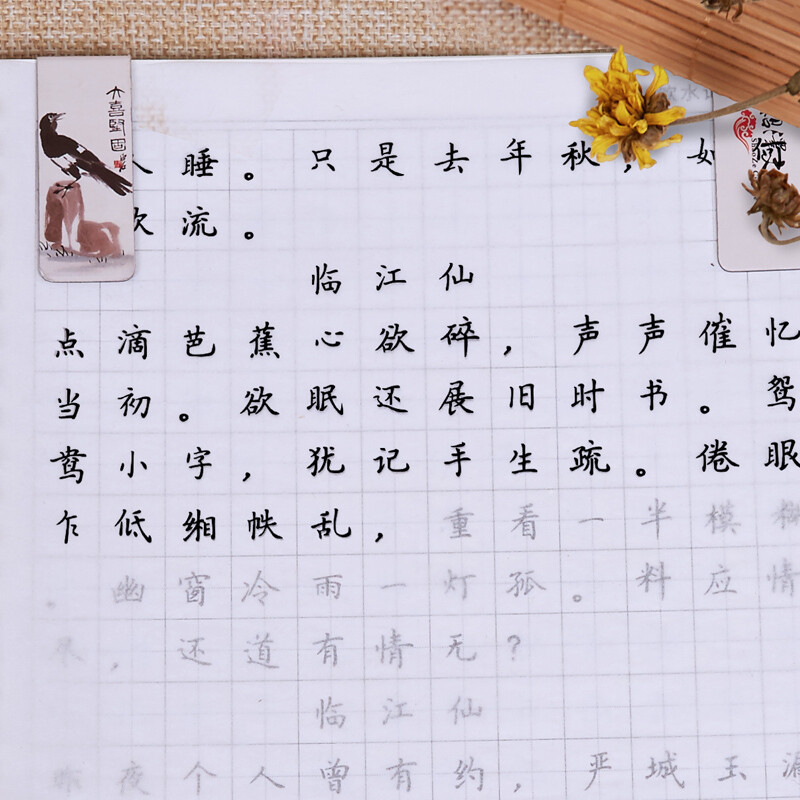 大喜堅固
人睡。只是去年秋，如
欢流。
临江仙
点滴芭蕉心欲碎，声声催忆
当初。欲眠还展旧时书。鸳
鸯小字，犹记手生疏。倦眼
乍低缃帙乱，重看一半模糊
。幽窗冷雨一灯孤。料应情
尽，还道有情无？
临江仙
昨夜个人曾有约，严城玉漏